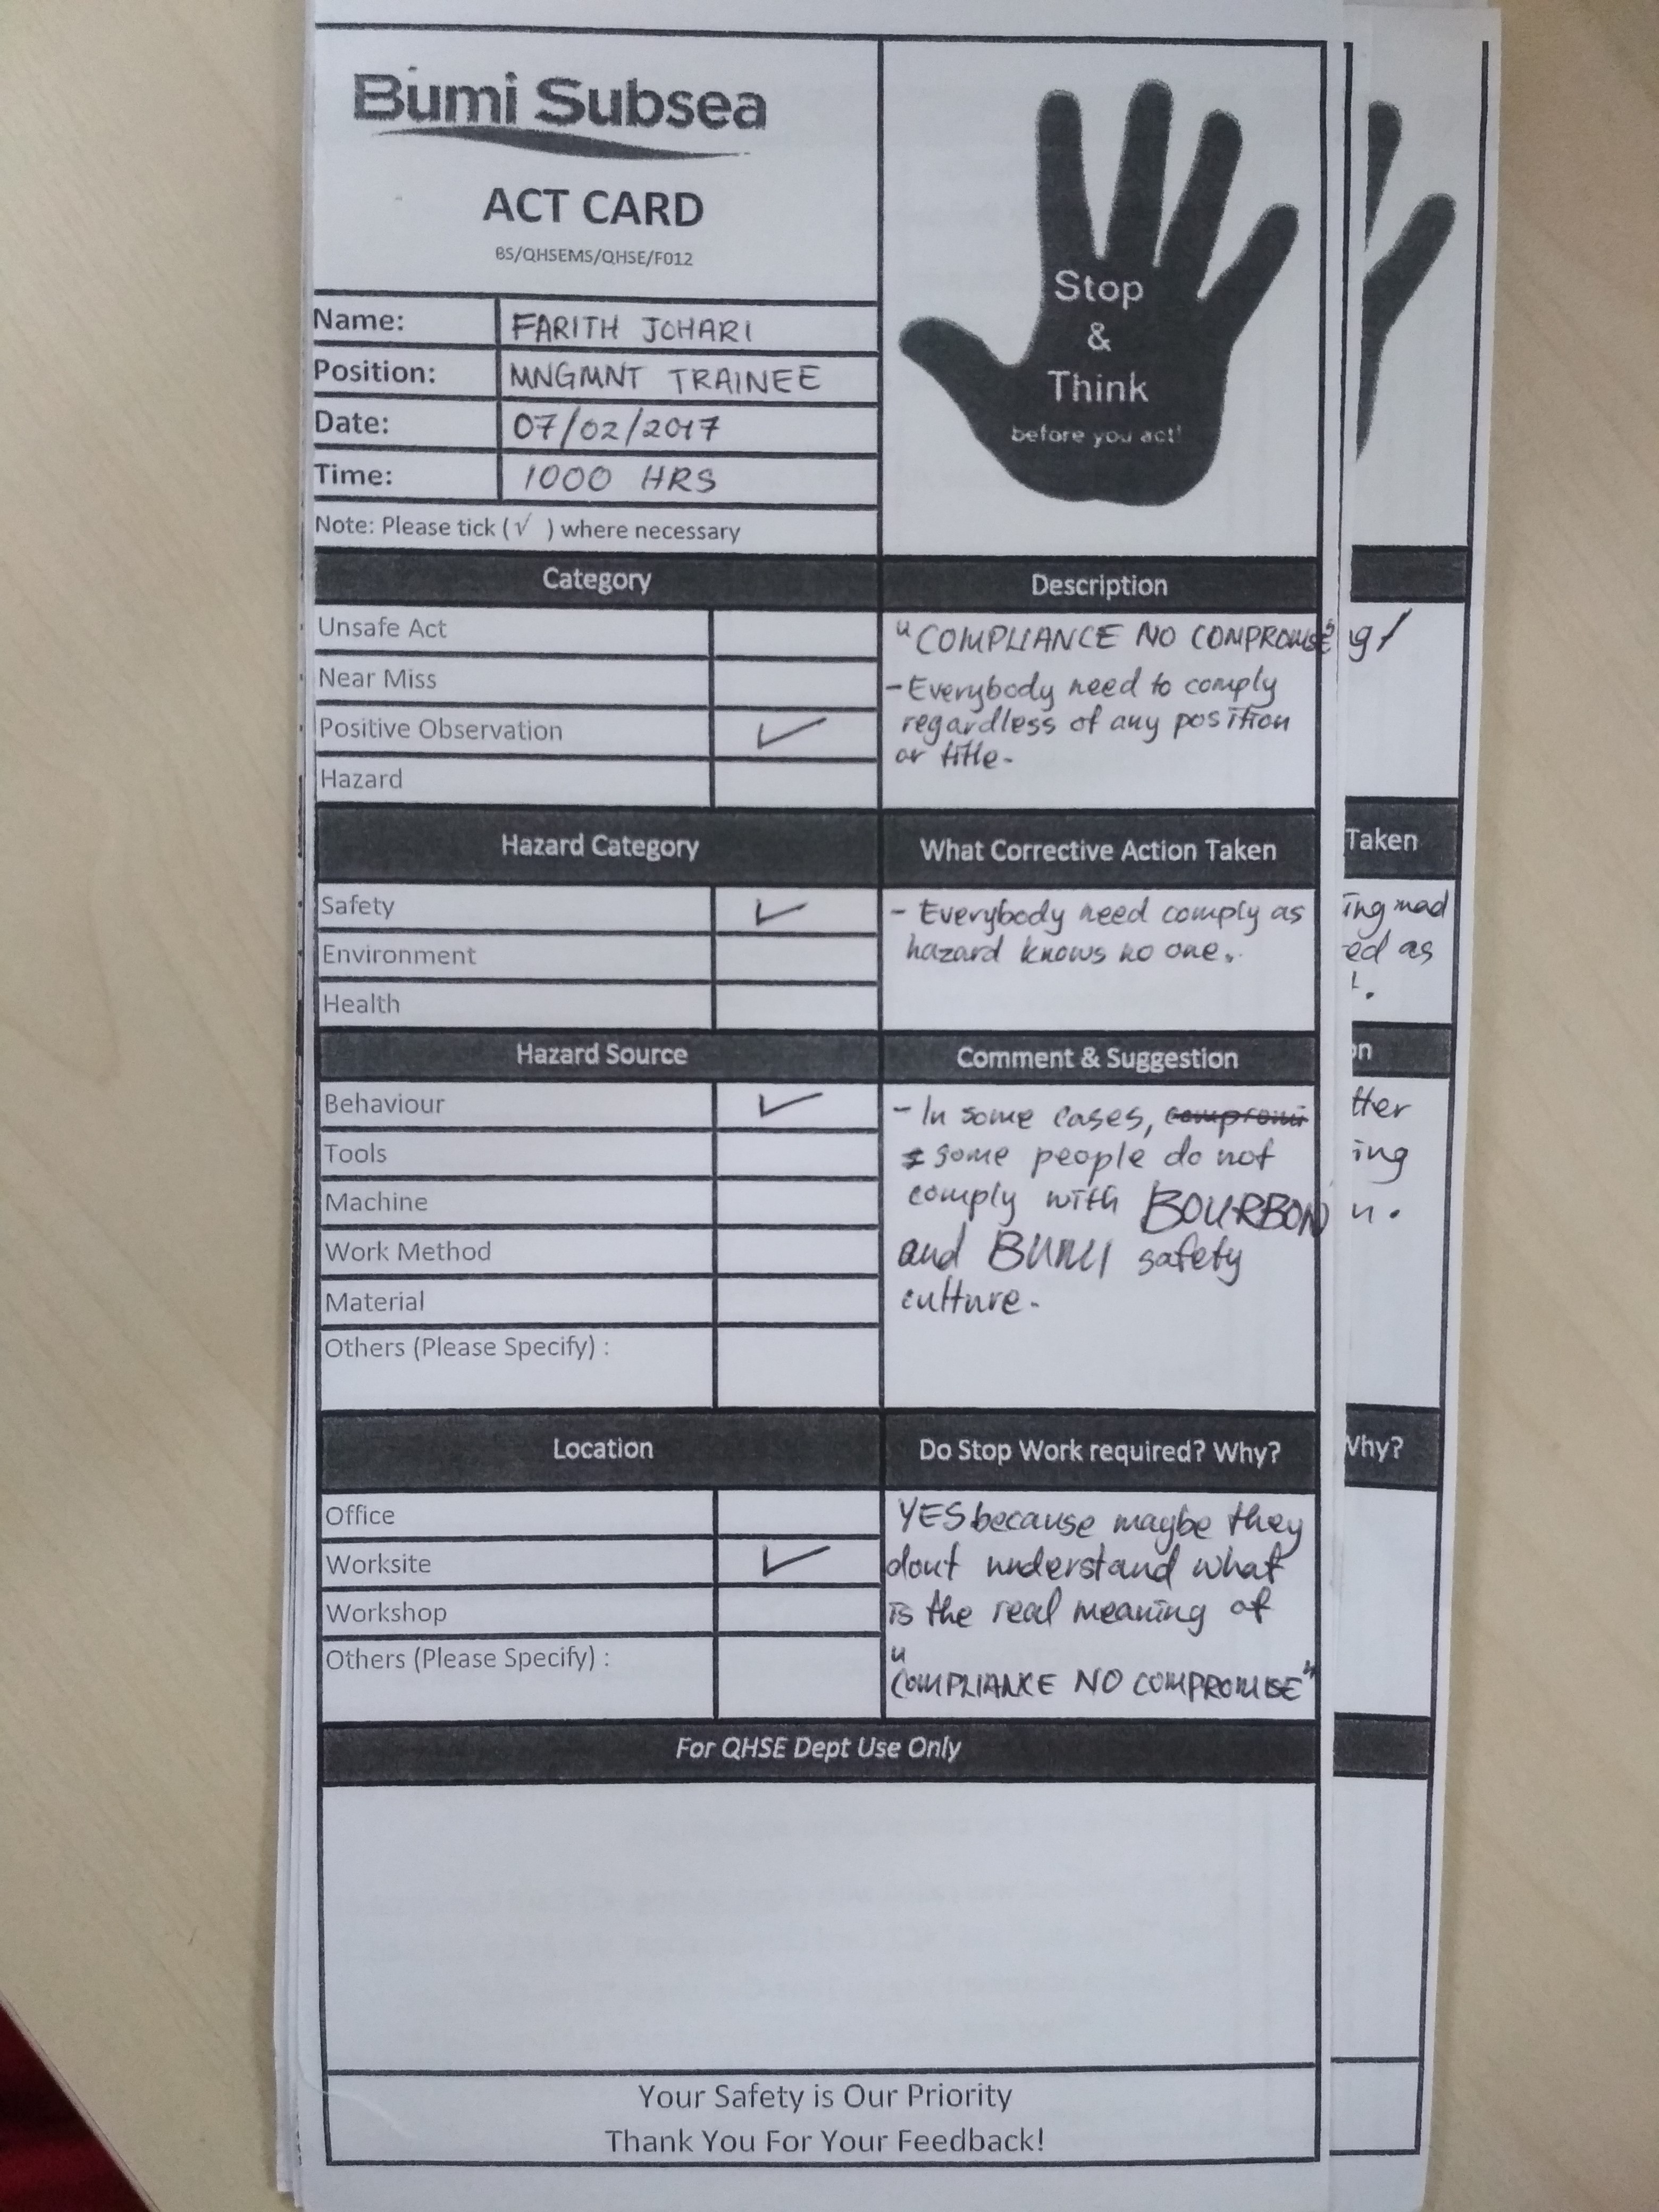 Bumi Subsea
ACT CARD
BS/QHSEMS/QHSE/F012
Stop
&
Think
before you act!
Name: FARITH JOHARI
Position: MNGMNT TRAINEE
Date: 07/02/2017
Time: 1000 HRS
Note: Please tick (√ ) where necessary
Category
Unsafe Act
Near Miss
Positive Observation ✓
Hazard
Description
"COMPLIANCE NO COMPROMISE"
- Everybody need to comply
regardless of any position
or title.
Hazard Category
Safety ✓
Environment
Health
What Corrective Action Taken
- Everybody need comply as
hazard knows no one.
Hazard Source
Behaviour ✓
Tools
Machine
Work Method
Material
Others (Please Specify) :
Comment & Suggestion
- In some cases, compromi
some people do not
comply with BOURBON
and BUMI safety
culture.
Location
Office
Worksite ✓
Workshop
Others (Please Specify) :
Do Stop Work required? Why?
YES because maybe they
dont understand what
is the real meaning of
"COMPLIANCE NO COMPROMISE"
For QHSE Dept Use Only
Your Safety is Our Priority
Thank You For Your Feedback!
Taken
ed as
ing
Why?